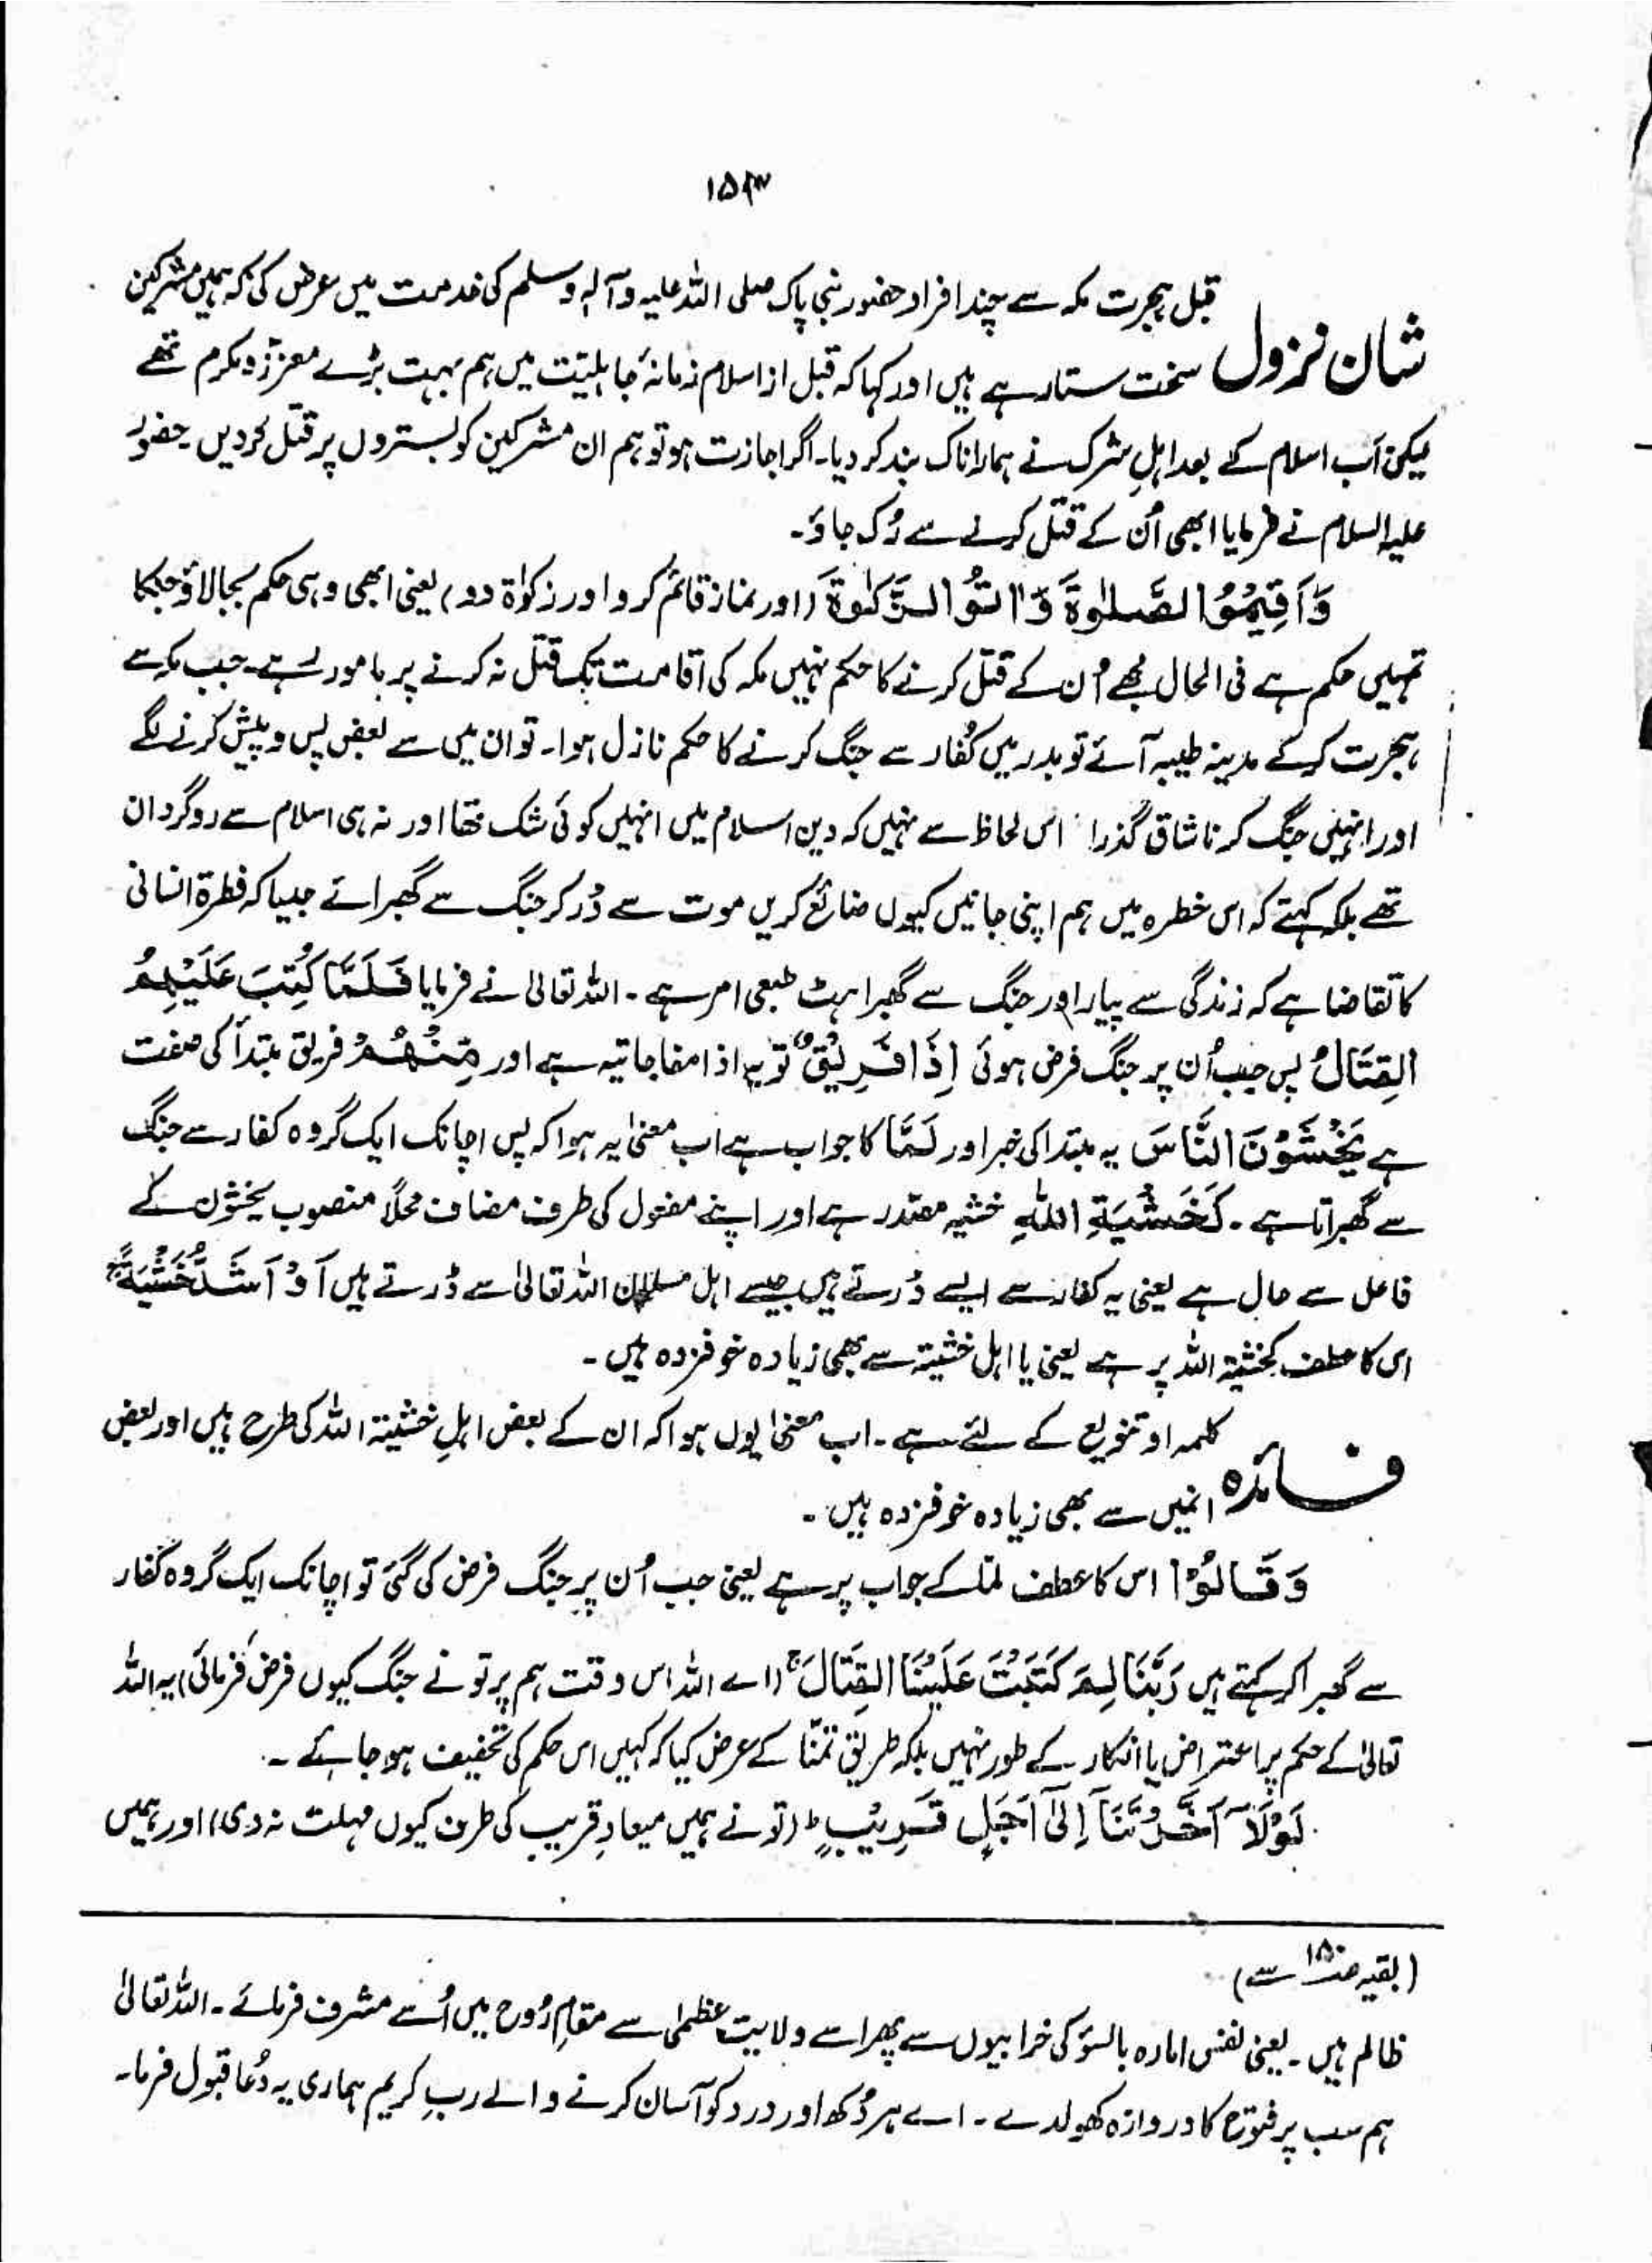 ۱۵۳
قبل ہجرت مکہ سے چند افراد حضور نبی پاک صلی اللہ علیہ وآلہٖ وسلم کی خدمت میں عرض کی کہ ہمیں مشرکین
شان نزول سخت ستار ہے ہیں اور کہا کہ قبل از اسلام زمانۂ جاہلیّت میں ہم بہت بڑے معزّز و مکرم تھے
لیکن اَب اسلام کے بعد اہلِ شرک نے ہمارا ناک بند کر دیا۔ اگر اجازت ہو تو ہم ان مشرکین کو بستروں پر قتل کردیں۔ حضور
علیہ السلام نے فرمایا ابھی اُن کے قتل کرنے سے رُک جاؤ۔
وَاَقِیْمُوا الصَّلٰوةَ وَاٰتُوا الزَّکٰوةَ (اور نماز قائم کرو اور زکوٰة دو) یعنی ابھی وہی حکم بجالاؤ جسکا
تمہیں حکم ہے فی الحال مجھے اُن کے قتل کرنے کا حکم نہیں مکہ کی اقامت تک قتل نہ کرنے پر مامور ہے۔ جب مکہ سے
ہجرت کرکے مدینہ طیبہ آئے تو بدر میں کُفار سے جنگ کرنے کا حکم نازل ہوا۔ تو ان میں سے بعض پس و پیش کرنے لگے
اور انہیں جنگ کرنا شاق گذرا اس لحاظ سے نہیں کہ دین اسلام میں انہیں کوئی شک تھا اور نہ ہی اسلام سے روگردان
تھے بلکہ کہتے کہ اس خطرہ میں ہم اپنی جانیں کیوں ضائع کریں موت سے ڈر کر جنگ سے گھبرائے جیسا کہ فطرة انسانی
کا تقاضا ہے کہ زندگی سے پیار اور جنگ سے گھبراہٹ طبعی امر ہے۔ اللہ تعالیٰ نے فرمایا فَلَمَّا کُتِبَ عَلَیْہِمُ
الْقِتَالُ پس جب اُن پر جنگ فرض ہوئی اِذَا فَرِیْقٌ تو یہ اذا مفاجاتیہ ہے اور مِّنْھُمْ فریق مبتدأ کی صفت
ہے یَخْشَوْنَ النَّاسَ یہ مبتدا کی خبر اور لَمَّا کا جواب ہے اب معنیٰ یہ ہوا کہ پس اچانک ایک گروہ کفار سے جنگ
سے گھبراتا ہے۔ کَخَشْیَةِ اللہِ خشیہ مصدر ہے اور اپنے مفعول کی طرف مضاف محلاً منصوب یخشون کے
فاعل سے حال ہے یعنی یہ کفار سے ایسے ڈرتے ہیں جیسے اہل اللہ تعالیٰ سے ڈرتے ہیں اَوْ اَشَدَّ خَشْیَةً ج
اس کا عطف کخشیة اللہ پر ہے یعنی یا اہل خشیتہ سے بھی زیادہ خوفزدہ ہیں۔
کلمہ او تنویع کے لئے ہے۔ اب معنیٰ یوں ہوا کہ ان کے بعض اہلِ خشیتہ اللہ کی طرح ہیں اور بعض
فائدہ انہیں سے بھی زیادہ خوفزدہ ہیں۔
وَقَالُوْا اس کا عطف لمّا کے جواب پر ہے یعنی جب اُن پر جنگ فرض کی گئی تو اچانک ایک گروہ کفار
سے گھبرا کر کہتے ہیں رَبَّنَا لِمَ کَتَبْتَ عَلَیْنَا الْقِتَالَ ج (اے اللہ اس وقت ہم پر تو نے جنگ کیوں فرض فرمائی) یہ اللہ
تعالیٰ کے حکم پر اعتراض یا انکار کے طور نہیں بلکہ طریق تمنّا کے عرض کیا کہ کہیں اس حکم کی تخفیف ہو جائے۔
لَوْلَآ اَخَّرْتَنَآ اِلٰٓی اَجَلٍ قَرِیْبٍ ط (تو نے ہمیں میعادِ قریب کی طرف کیوں مہلت نہ دی) اور ہمیں
(بقیہ صنہ ۱۵ سے)
ظالم ہیں۔ یعنی نفس امارہ بالسؤ کی خرابیوں سے پھر اسے ولایت عظمیٰ سے مقامِ رُوح میں اُسے مشرف فرمائے۔ اللہ تعالیٰ
ہم سب پر فتوح کا دروازہ کھولدے۔ اے ہر دُکھ اور درد کو آسان کرنے والے ربِ کریم ہماری یہ دُعا قبول فرما۔